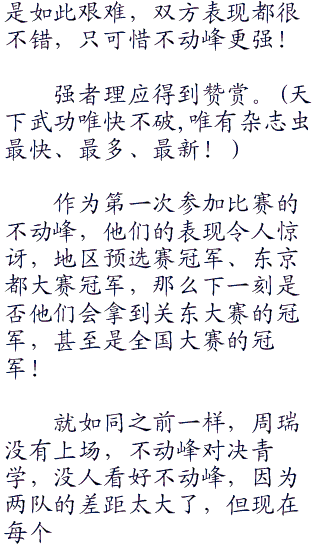 是如此艰难，双方表现都很
不错，只可惜不动峰更强！
强者理应得到赞赏。(天
下武功唯快不破,唯有杂志虫
最快、最多、最新！)
作为第一次参加比赛的
不动峰，他们的表现令人惊
讶，地区预选赛冠军、东京
都大赛冠军，那么下一刻是
否他们会拿到关东大赛的冠
军，甚至是全国大赛的冠
军！
就如同之前一样，周瑞
没有上场，不动峰对决青
学，没人看好不动峰，因为
两队的差距太大了，但现在
每个